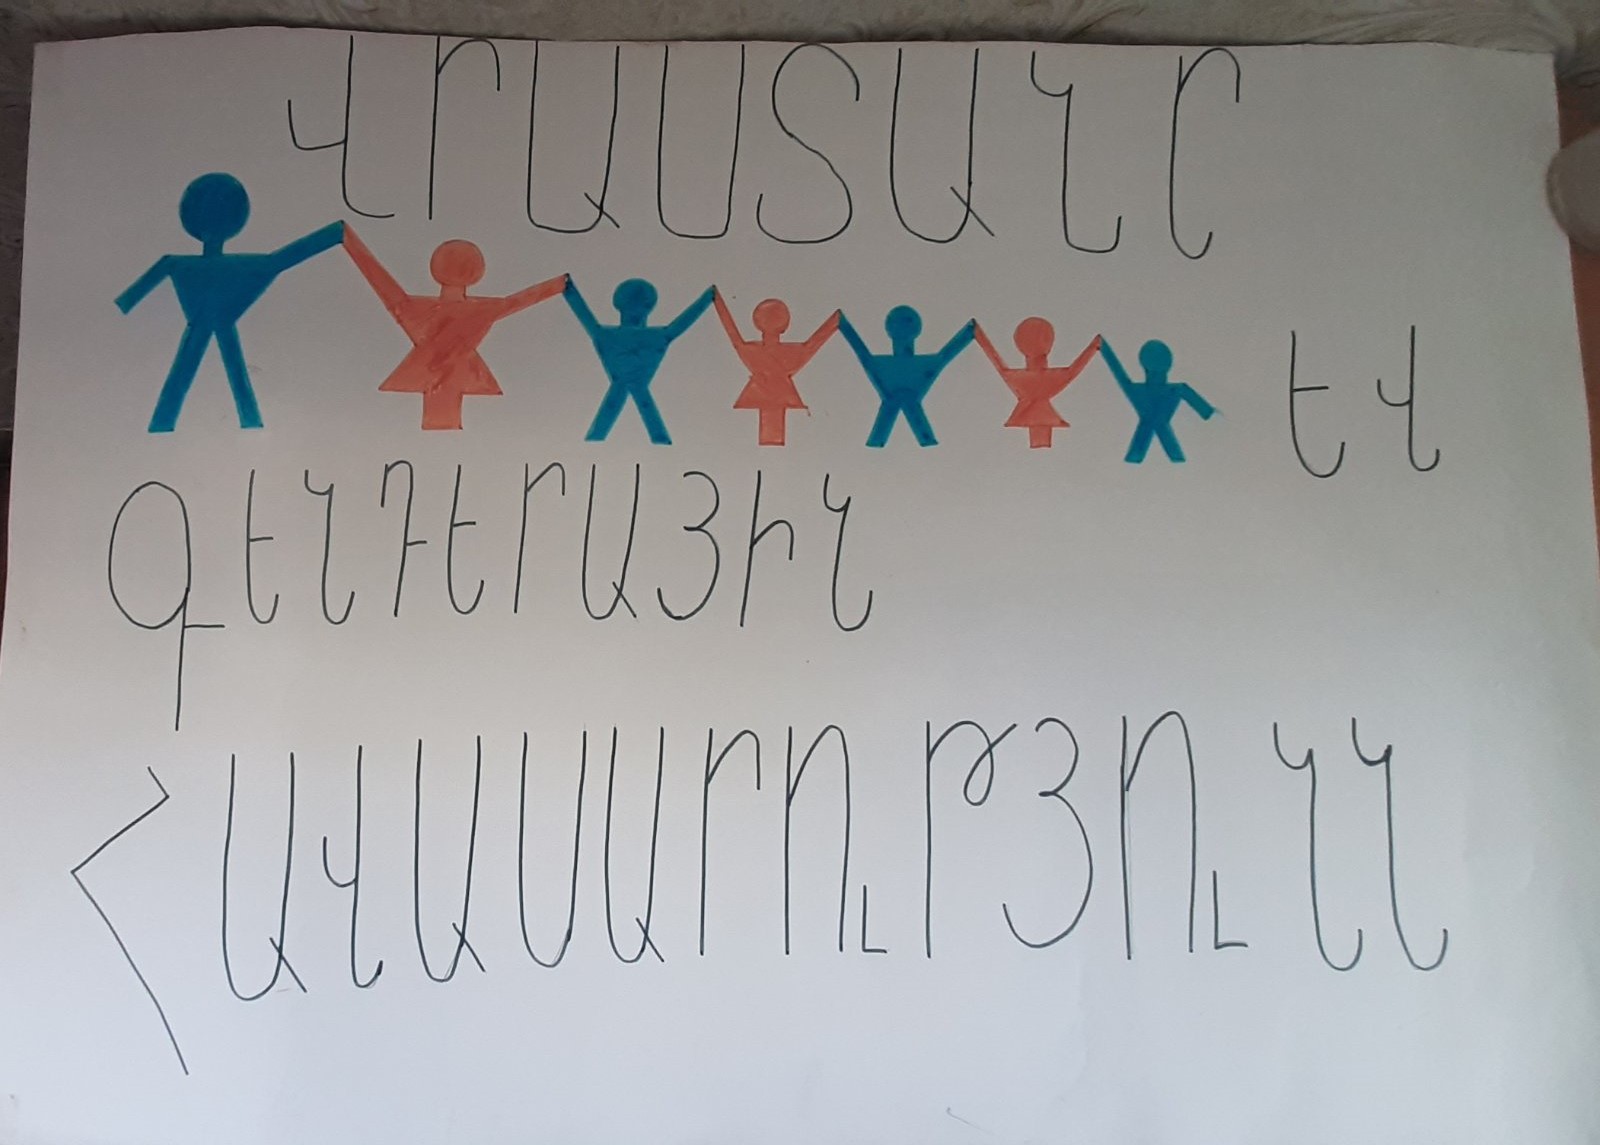 ՎՐԱՍՏԱՆԸ
ԵՎ
ԳԵՆԴԵՐԱՅԻՆ
ՀԱՎԱՍԱՐՈՒԹՅՈՒՆՆ